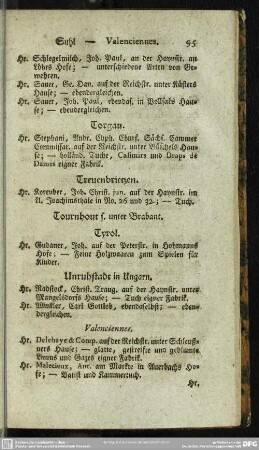 Suhl — Valenciennes. 95
Hr. Schlegelmilch, Joh. Paul, an der Haynstr. an
Löhrs Hofe; — unterschiedene Arten von Ge-
wehren.
Hr. Sauer, Ge. Dan. auf der Reichsstr. unter Küsters
Hause; — ebendergleichen.
Hr. Sauer, Joh. Paul, ebendas. in Vollsacks Hau-
se; — ebendergleichen.
Torgau.
Hr. Stephani, Andr. Chph. Churf. Sächs. Cammer
Commissar. auf der Reichsstr. unter Häckels Hau-
se; — holländ. Tuche, Casimirs und Draps de
Dames eigner Fabrik.
Treuenbrietzen.
Hr. Koreuber, Joh. Christ. jun. auf der Haynstr. im
kl. Joachimsthale in No. 26 und 32. — Tuch.
Tournhout s. unter Brabant.
Tyrol.
Hr. Gudauer, Joh. auf der Peterstr. in Hohmanns
Hofe; — Feine Holzwaaren zum Spielen für
Kinder.
Unruhstadt in Ungarn.
Hr. Radstock, Christ. Traug. auf der Haynstr. unter
Mangelsdorfs Hause; — Tuch eigner Fabrik.
Hr. Winkler, Carl Gottlob, ebendaselbst; — eben-
dergleichen.
Valenciennes.
Hr. Delehaye & Comp. auf der Reichsstr. unter Schleuß-
ners Hause; — glatte, gestreifte und geblümte
Linons und Gazes eigner Fabrik.
Hr. Malecieux, Ant. am Markte in Auerbachs Ho-
fe; — Batist und Kammertuch.
Hr.